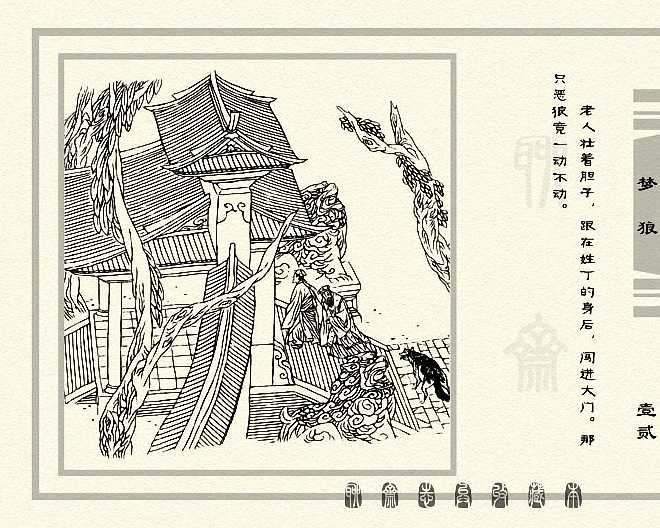 老人壮着胆子，跟在姓丁的身后，闯进大门。那
只恶狼竟一动不动。
梦狼
壹贰
聊斋志异收藏本